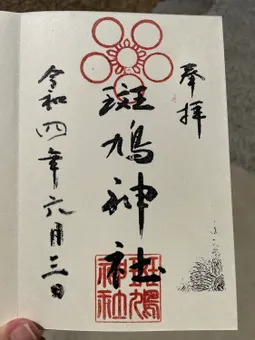 奉拝
斑鳩神社
斑鳩神社
令和四年六月三日